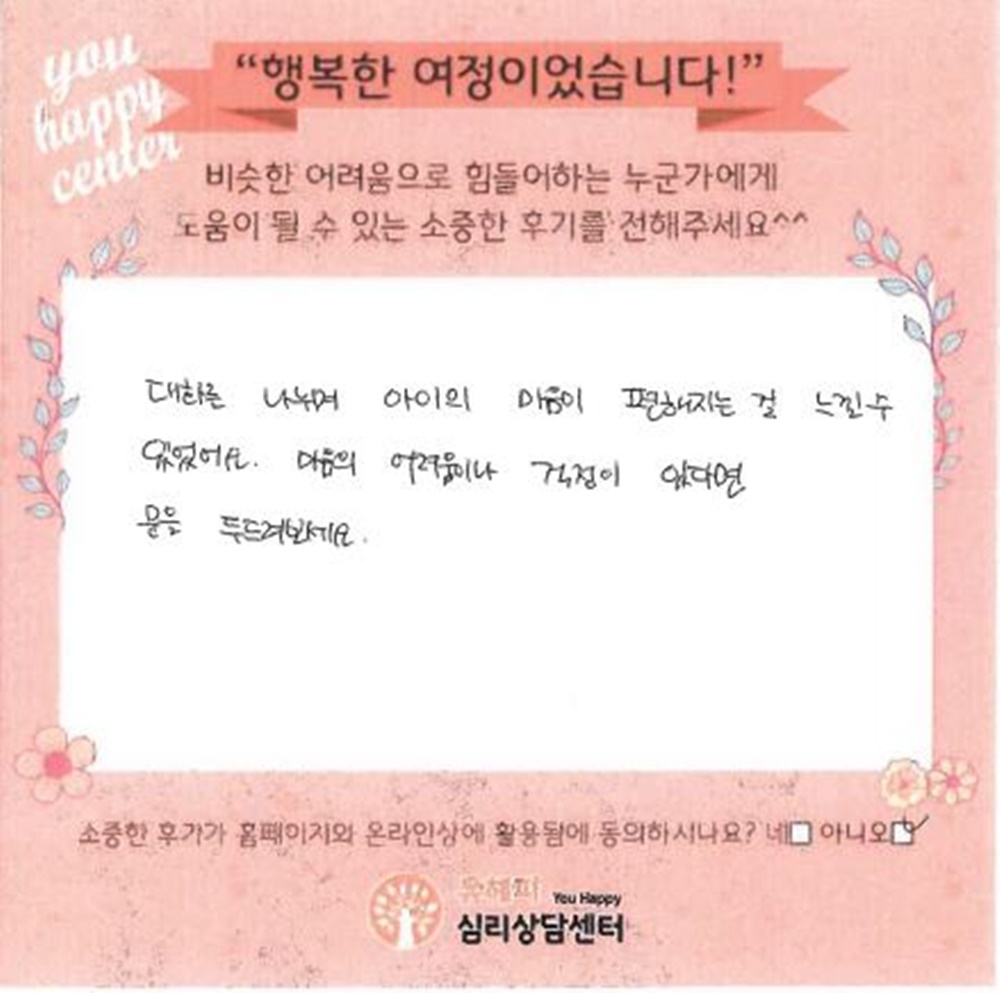 you
happy
center
“행복한 여정이었습니다!”
비슷한 어려움으로 힘들어하는 누군가에게
도움이 될 수 있는 소중한 후기를 전해주세요^^
대화를 나누며 아이의 마음이 편해지는 걸 느낄 수
있었어요. 마음의 어려움이나 걱정이 있다면
문을 두드려보세요.
소중한 후기가 홈페이지와 온라인상에 활용됨에 동의하시나요? 네□ 아니오☑
유해피 You Happy
심리상담센터